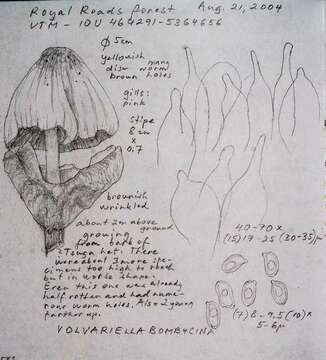 Royal Roads forest Aug. 21, 2004
UTM - 10U 464291-5364656
Ø 5cm
yellowish
disc many worm
brown holes
gills:
pink
stipe
8 cm
x
0.7
brownish
wrinkled
about 2m above
ground
growing
from bark of
? Tsuga het. There
were about 3 more spe-
cimens too high to reach
but in worse shape.
Even this one was already
half rotten and had nume-
rous worm holes. Also 2 young
farther up.
VOLVARIELLA BOMBYCINA
40-70 x
(15) 17-25 (30-35) µm
(7) 8-9.5 (10) x
5-6µ